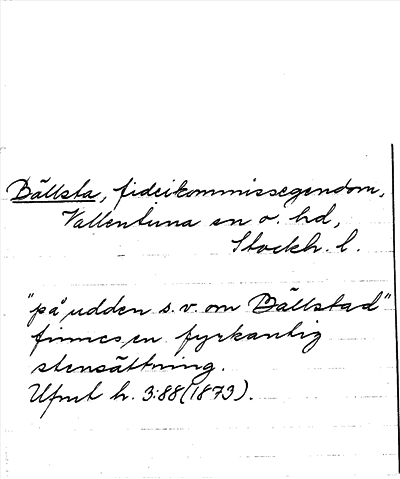 Bällsta, fideikommissegendom,
Vallentuna sn o. hd,
Stockh. l.
"på udden s.v. om Bällstad"
finnes en fyrkantig
stensättning.
Ufmt h. 3:88 (1873).